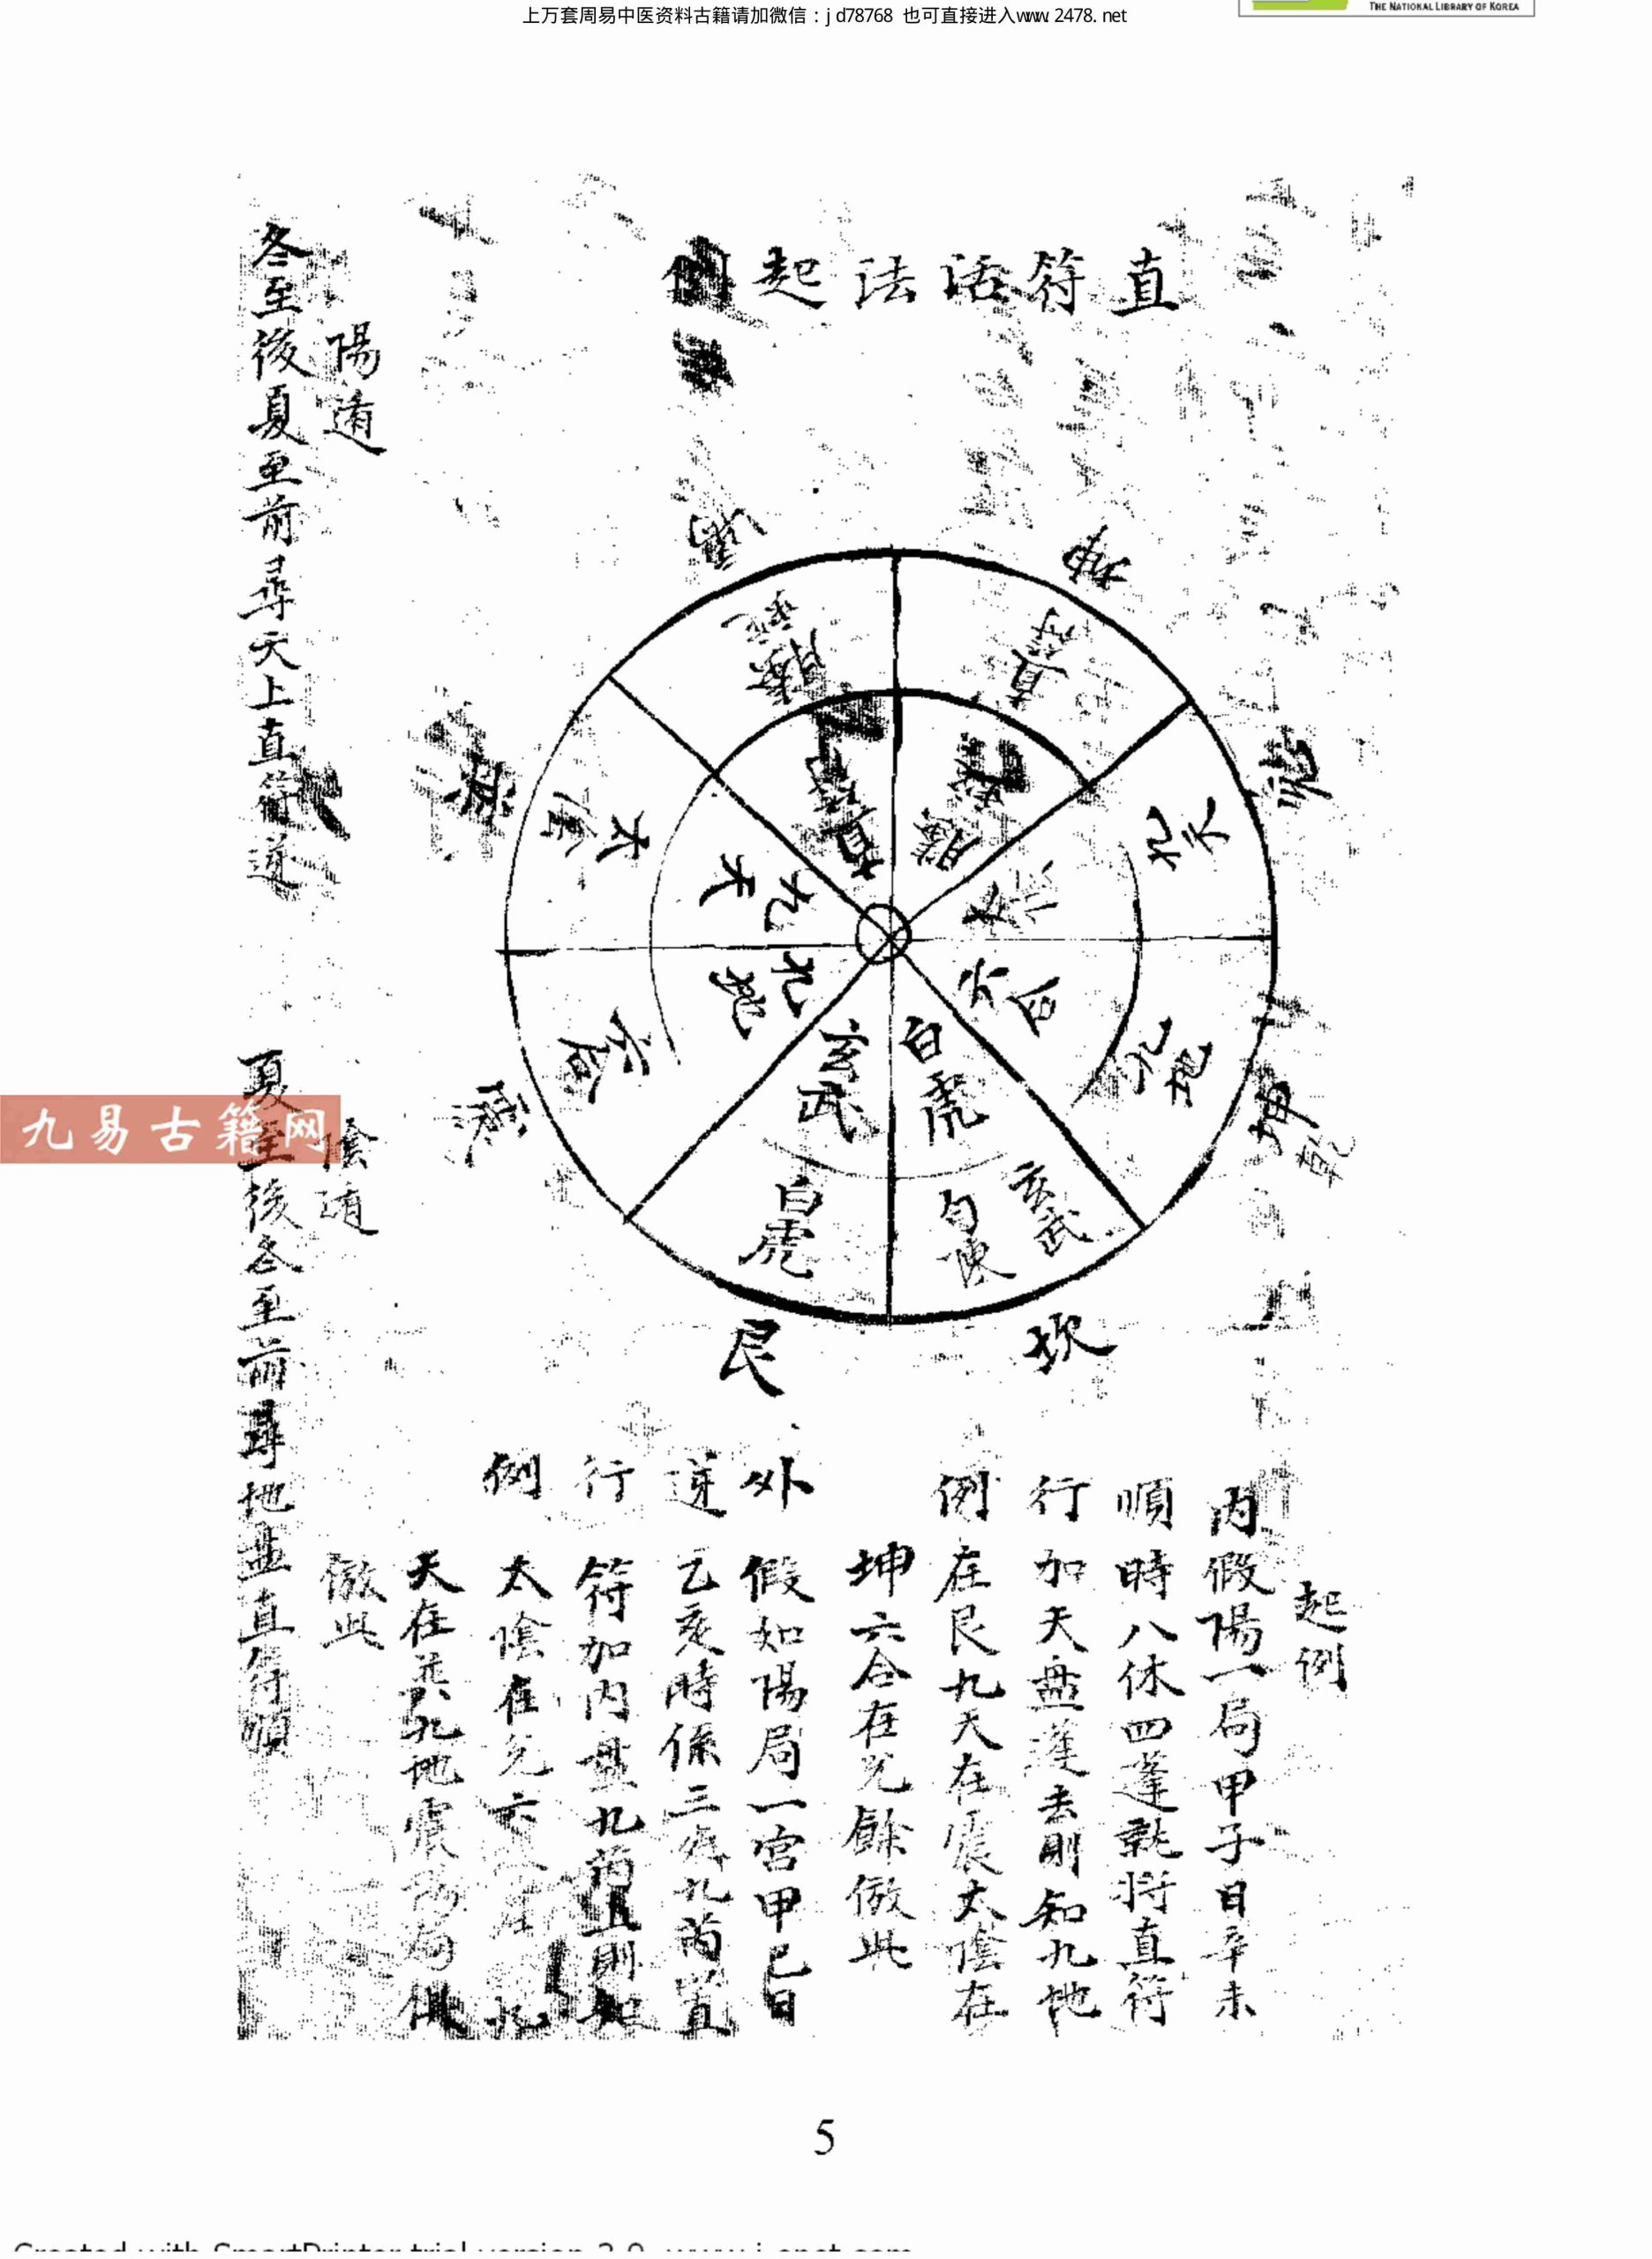 上万套周易中医资料古籍请加微信：jd78768 也可直接进入www.2478.net
THE NATIONAL LIBRARY OF KOREA
直符活法起例
坤
直符
螣
九天
九地
太陰
六合
白虎
玄武
九地
九天
直符
九天
九地
玄武
勾陳
白虎
六合
太陰
離
巽
震
艮
坎
坤
乾
起例
内假陽一局甲子日辛未
順時八休四蓬就將直符
行加天盤蓬去則知九地
例在艮九天在震太陰在
坤六合在兌餘倣此
外假如陽局一宮甲己日
逆乙亥時係三 九芮直
行符加内盤九芮直則知
例太陰在兌六 在 九
天在巽九地震 局俱
倣此
陽遁
冬至後夏至前尋天上直符逆
陰遁
夏至後冬至前尋地盤直符順
九易古籍网
5
Created with SmartPrinter trial version